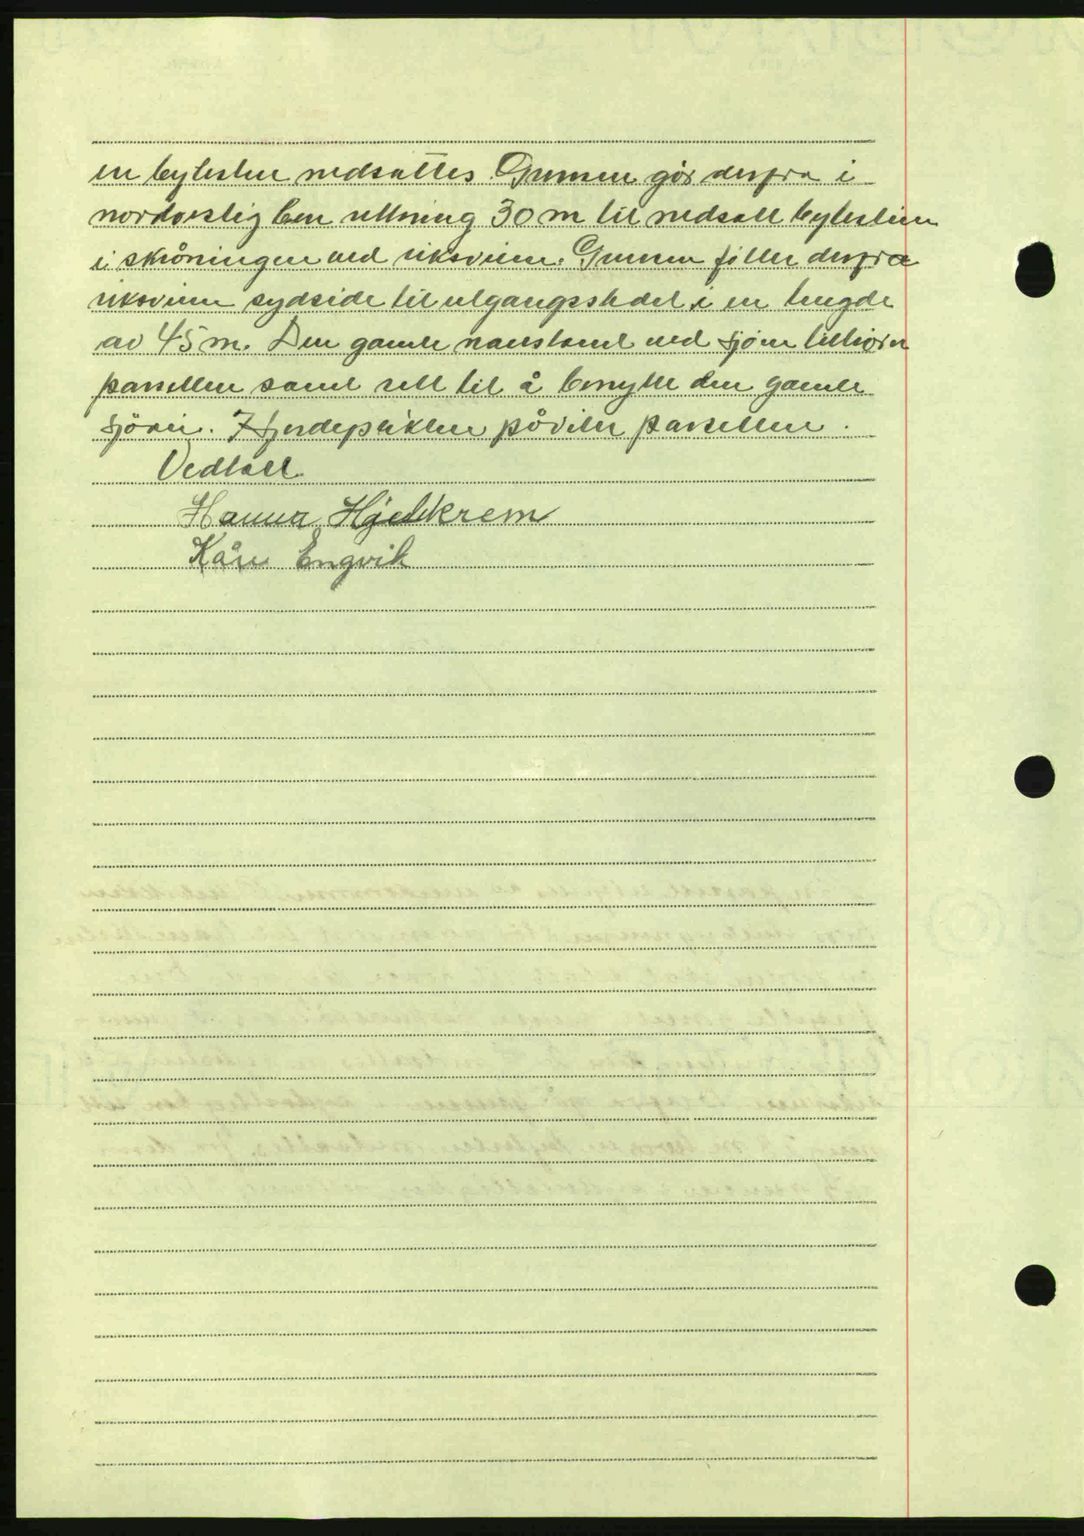 en bytesten nedsattes. Grensen går derfra i
nordvestlig ben retning 30 m til nedsatt bytestein
i skråningen ved riksveien. Grensen følter derfra
riksveien sydside til utgangsstedet i en lengde
av 45 m. Den gamle nausttomt ved sjøen tilhører
parsellen samt rett til å benytte den gamle
sjövei. Gjerdeplikten påviler parsellen.
Vedtatt
Hanna Hjelkrem
Kåre Engvik